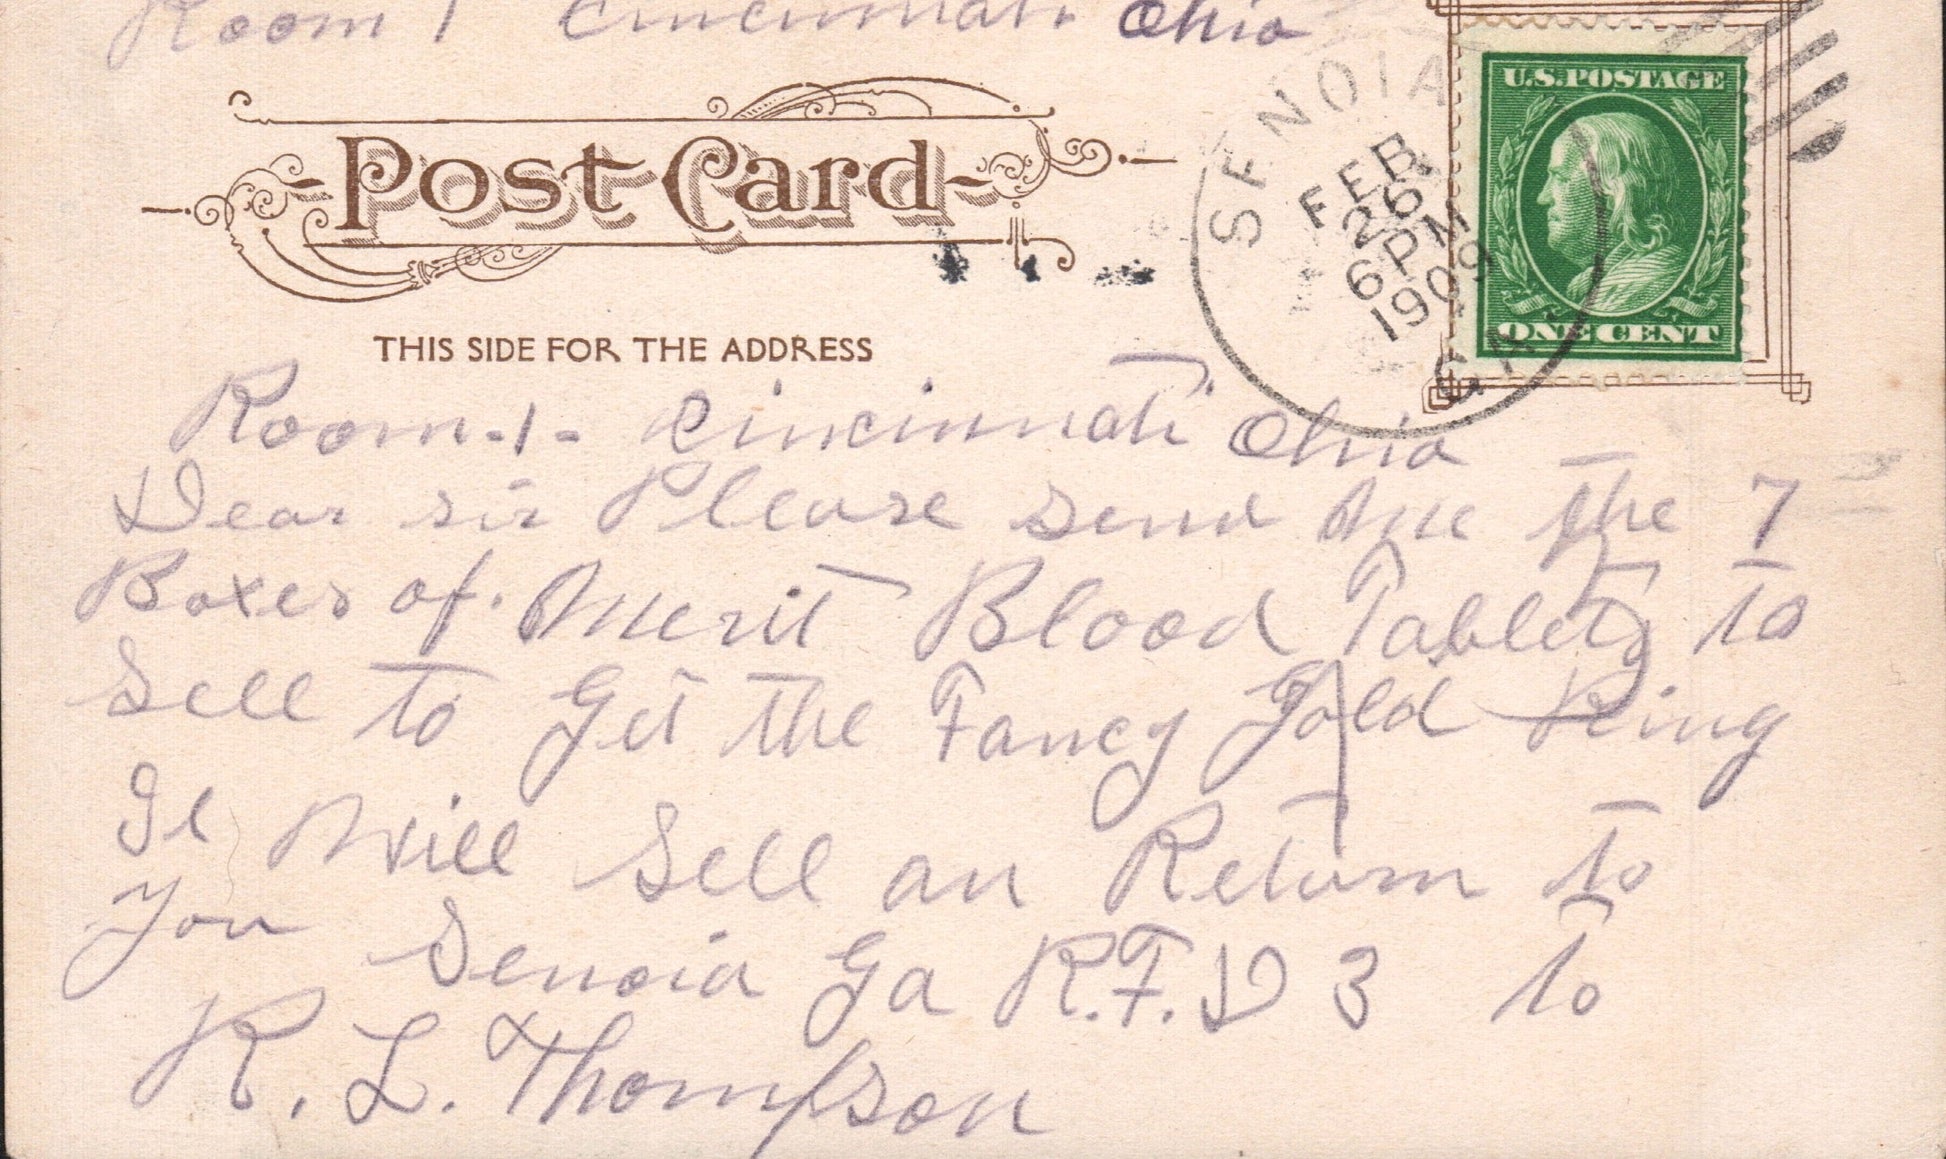 Room 1 Cincinnati Ohio
U.S. POSTAGE
ONE CENT
SENOIA
FEB
26
6 PM
1909
GA.
Post Card
THIS SIDE FOR THE ADDRESS
Room-1- Cincinnati Ohio
Dear sir Please send Me the 7
Boxes of Merit Blood Tablets to
Sell to Get the Fancy Gold Ring
Will Sell an Return to
You Senoia Ga R.F.D 3 to
R. L. Thompson